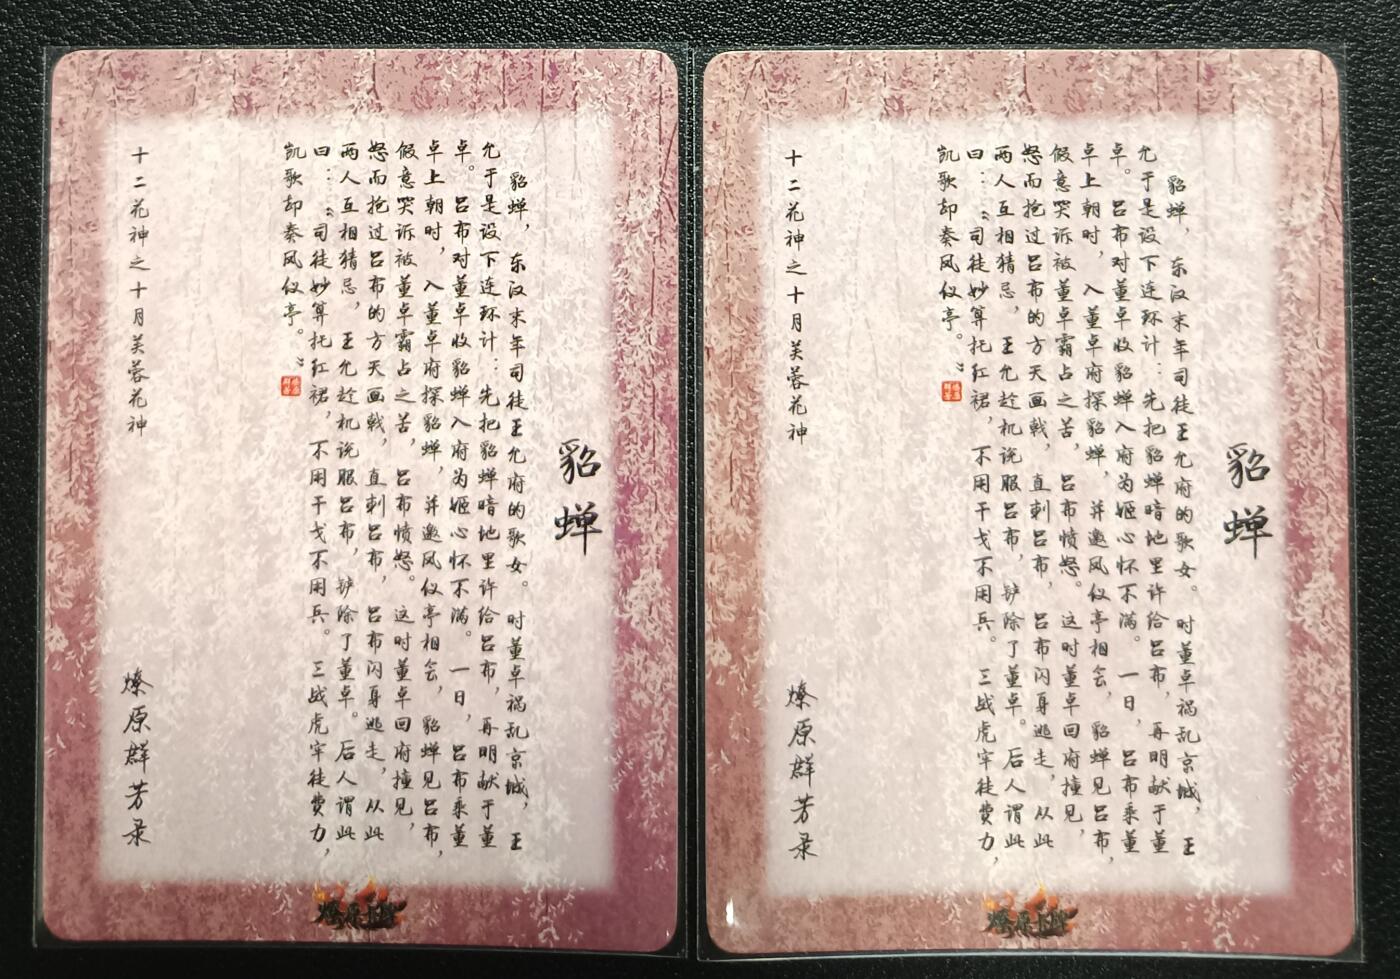 貂蝉
貂蝉，东汉末年司徒王允府的歌女。时董卓祸乱京城，王
允于是设下连环计：先把貂蝉暗地里许给吕布，再明献于董
卓。吕布对董卓收貂蝉入府为姬心怀不满。一日，吕布乘董
卓上朝时，入董卓府探貂蝉，并邀凤仪亭相会，貂蝉见吕布，
假意哭诉被董卓霸占之苦，吕布愤怒。这时董卓回府撞见，
怒而抢过吕布的方天画戟，直刺吕布，吕布闪身逃走，从此
两人互相猜忌，王允趁机说服吕布，铲除了董卓。后人谓此
曰：“司徒妙算托红裙，不用干戈不用兵。三战虎牢徒费力，
凯歌却奏凤仪亭。”
十二花神之十月芙蓉花神
燎原群芳录
貂蝉
貂蝉，东汉末年司徒王允府的歌女。时董卓祸乱京城，王
允于是设下连环计：先把貂蝉暗地里许给吕布，再明献于董
卓。吕布对董卓收貂蝉入府为姬心怀不满。一日，吕布乘董
卓上朝时，入董卓府探貂蝉，并邀凤仪亭相会，貂蝉见吕布，
假意哭诉被董卓霸占之苦，吕布愤怒。这时董卓回府撞见，
怒而抢过吕布的方天画戟，直刺吕布，吕布闪身逃走，从此
两人互相猜忌，王允趁机说服吕布，铲除了董卓。后人谓此
曰：“司徒妙算托红裙，不用干戈不用兵。三战虎牢徒费力，
凯歌却奏凤仪亭。”
十二花神之十月芙蓉花神
燎原群芳录